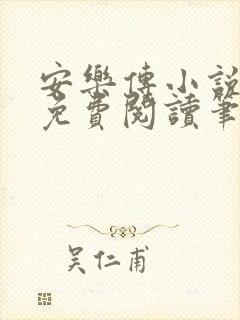 安樂傳小說
免費閱讀筆
吴仁甫